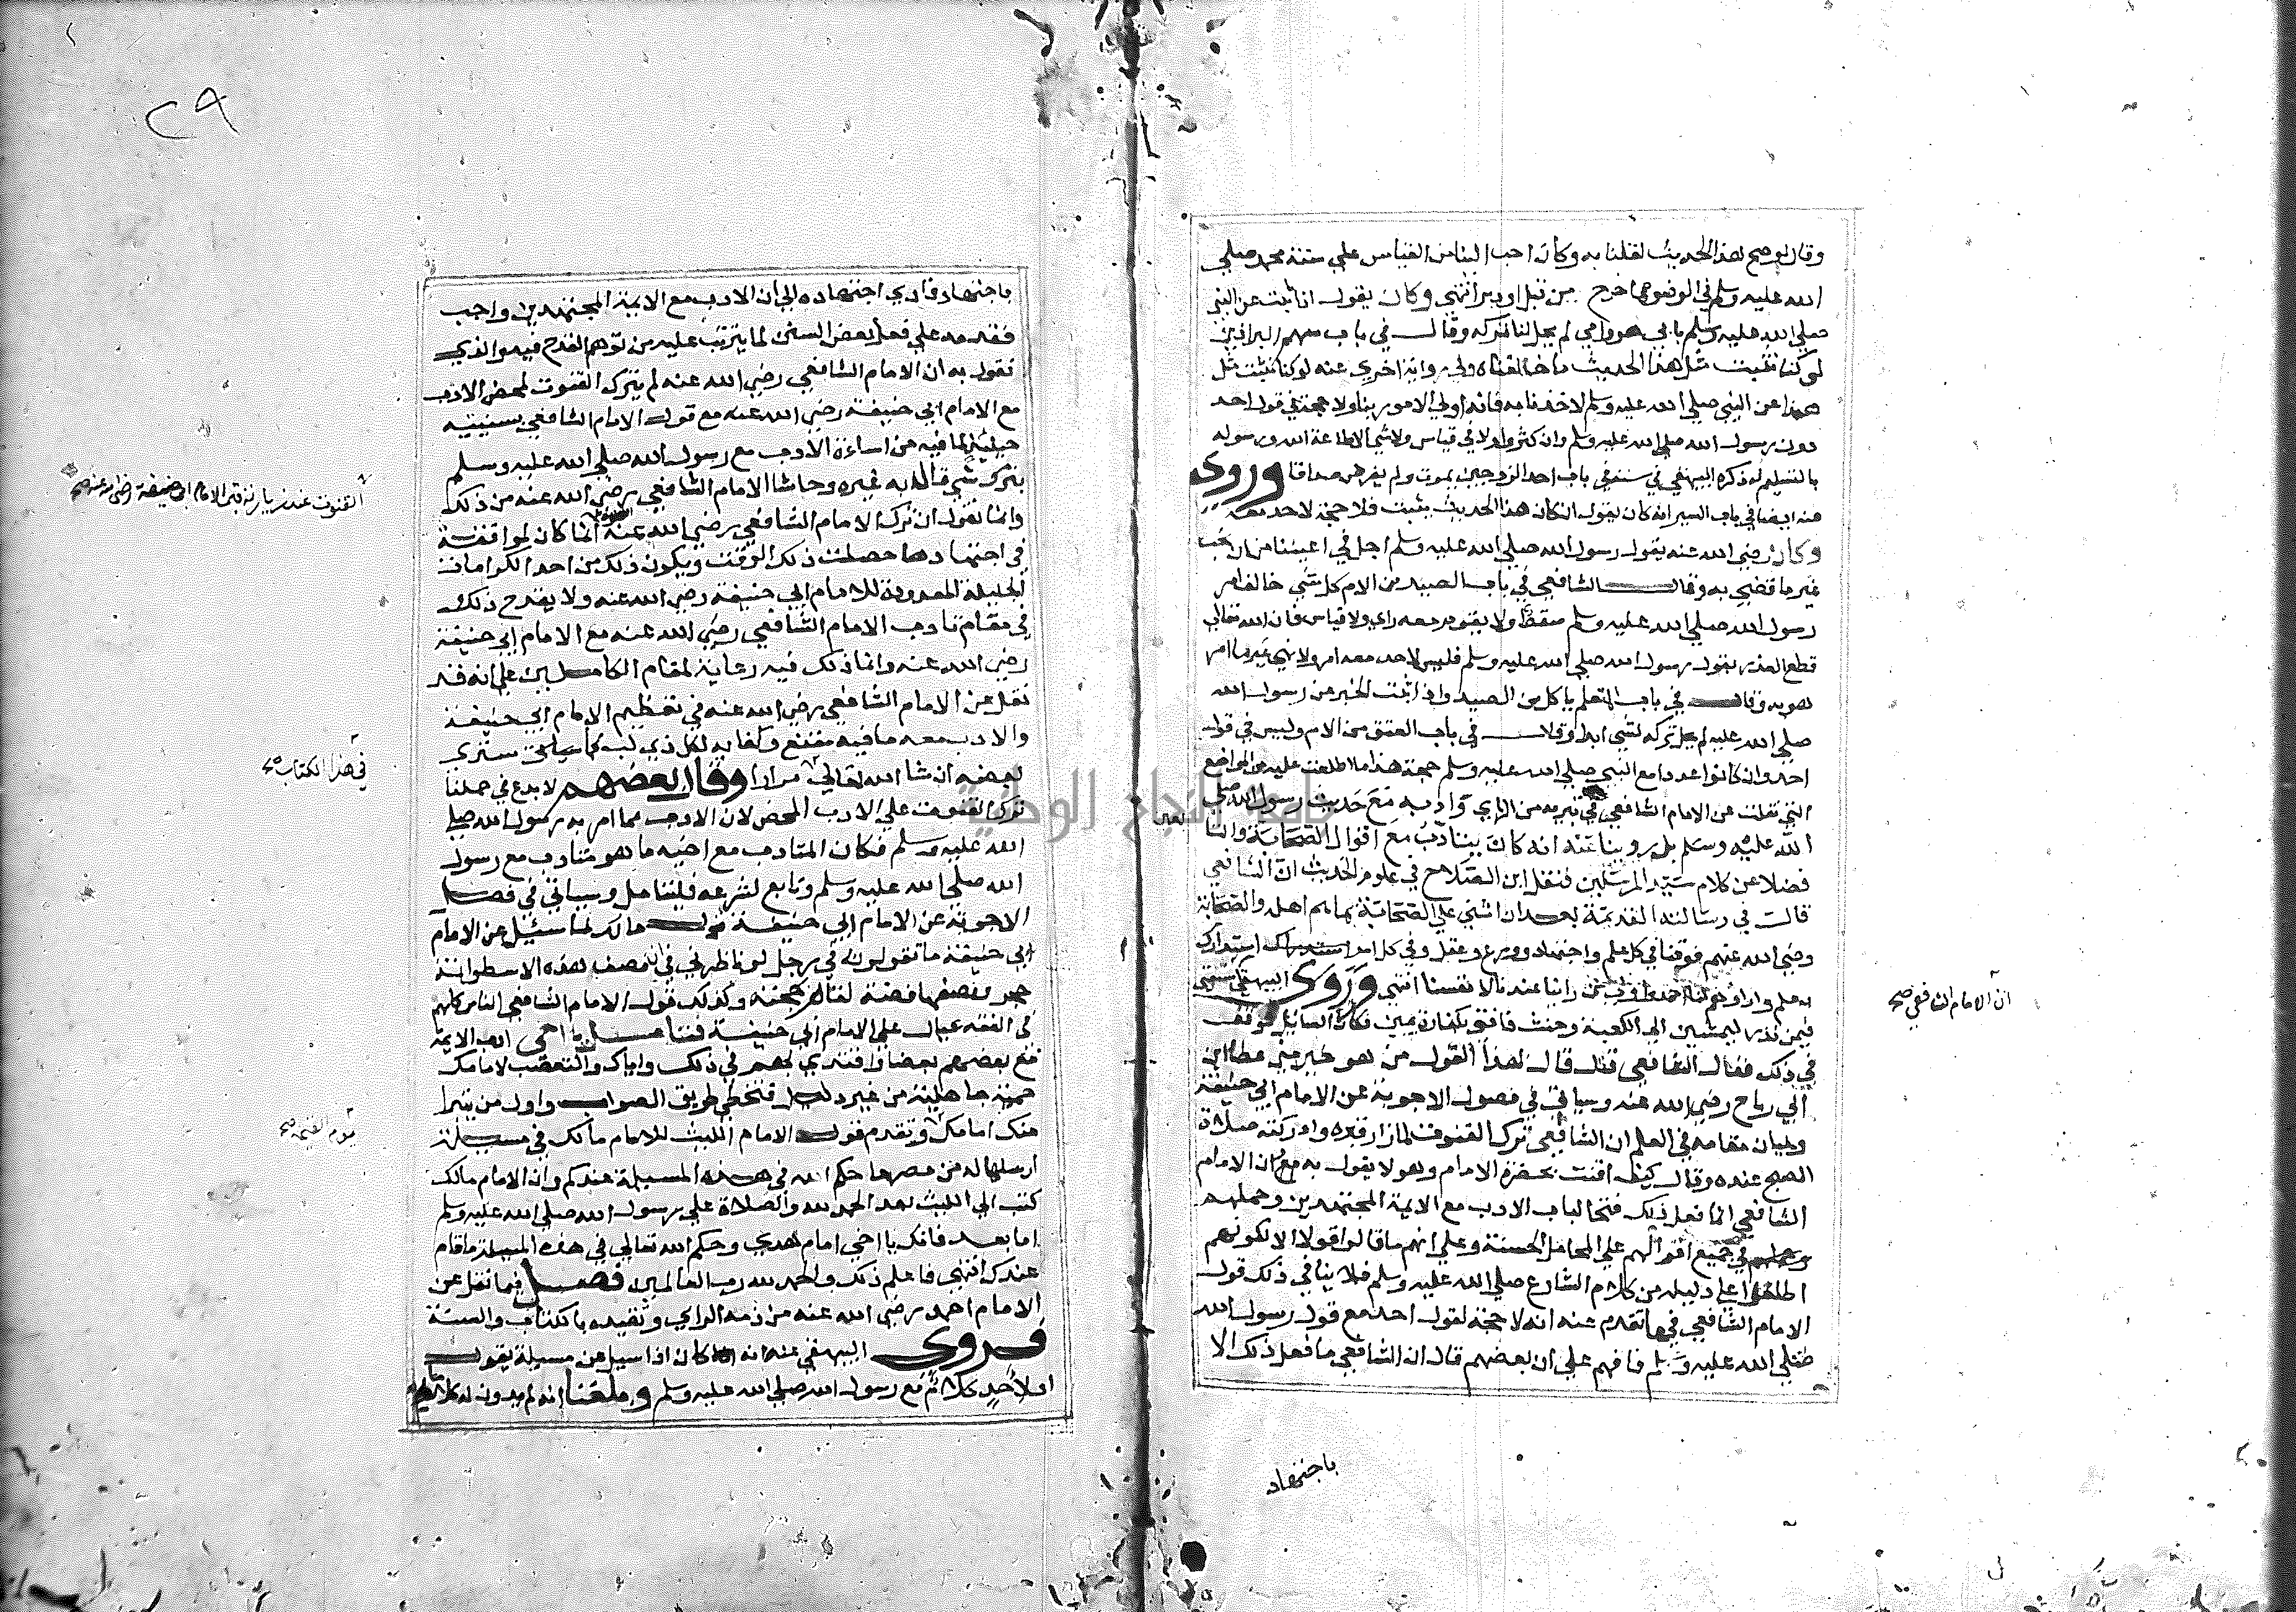 وقال لو صح هذا الحديث لقلنا به وكان احب الينا من القياس علي سنة محمد صلي
الله عليه وسلم في الوضوء مما خرج من قبل او دبر انتهي وكان يقول اذا ثبت عن النبي
صلي الله عليه وسلم بابي هو وامي لم يحل لنا تركه وقال في باب سهم البراذين
لو كنا نثبت مثل هذا الحديث ما خالفناه وفي رواية اخري عنه لو كنا نثبت مثل
هذا عن النبي صلي الله عليه وسلم لاخذنا به فانه اولي الامور بنا ولا حجة في قول احد
دون رسول الله صلي الله عليه وسلم وان كثروا ولا في قياس ولا شي الا طاعة الله ورسوله
بالتسليم له ذكره البيهقي في سننه في باب احد الزوجين يموت ولم يفرض صداقا وروي
عنه ايضا في باب السير انه كان يقول ان كان هذا الحديث يثبت فلا حجة لاحد معه
وكان رضي الله عنه يقول رسول الله صلي الله عليه وسلم اجل في اعيننا من ان نحب
غير ما قضي به وقال الشافعي في باب الصيد من الام كل شي خالف امر
رسول الله صلي الله عليه وسلم سقط ولا يقوم معه راي ولا قياس فان الله تعالي
قطع العذر بقول رسول الله صلي الله عليه وسلم فليس لاحد معه امر ولا نهي غير ما امر
هو به وقال في باب المعلم ياكل من الصيد واذا ثبت الخبر عن رسول الله
صلي الله عليه لم يحل تركه لشي ابدا وقال في باب العتق من الام وليس في قول
احد وان كانوا عددا مع النبي صلي الله عليه وسلم حجة هذا ما اطلعت عليه من المواضع
التي نقلت عن الامام الشافعي في تبريه من الراي وادبه مع حديث رسول الله صلي
الله عليه وسلم بل روينا عنه انه كان يتادب مع اقوال الصحابة والتا
بعين
فضلا عن كلام سيد المرسلين فنقل ابن الصلاح في علوم الحديث ان الشافعي
قال في رسالته القديمة بعد ان اثني علي الصحابة بما هم اهله والصحابة
رضي الله عنهم فوقنا في كل علم واجتهاد وورع وعقل وفي كل امر استدرك
به علم واراؤهم لنا احمد واولي من راينا عندنا لانفسنا انتهي وروي البيهقي
فيمن نذر ليمشين الي الكعبة وحنث فافتي بكفارة يمين فكان السايل توقف
في ذلك فقال الشافعي قد قال هذا القول من هو خير مني عطا ابن
ابي رباح رضي الله عنه وسياتي في فصول الاجوبة عن الامام ابي حنيفة
وبيان مقامه في العلم ان الشافعي ترك القنوت لما زار قبره وادركته صلاة
الصبح عنده وقال كيف اقنت بحضرة الامام وهو لا يقول به مع ان الامام
الشافعي انما فعل ذلك فتحا لباب الادب مع الايمة المجتهدين وحملهم
في جميع اقوالهم علي المحامل الحسنة وعلي انهم ما قالوا قولا الا لكونهم
اطلعوا علي دليله من كلام الشارع صلي الله عليه وسلم فلا ينافي ذلك قول
الامام الشافعي فيما تقدم عنه انه لا حجة لقول احد مع قول رسول الله
صلي الله عليه وسلم فافهم علي ان بعضهم قال ان الشافعي ما فعل ذلك الا
باجتهاد
ان الامام الشافعي صح
٢٩
باجتهاد فادي اجتهاده الي ان الادب مع الايمة المجتهدين واجب
فقدمه علي فعل بعض السنن لما يترتب عليه من توهم القدح فيه والذي
نقول به ان الامام الشافعي رضي الله عنه لم يترك القنوت لمحض الادب
مع الامام ابي حنيفة رضي الله عنه مع قول الامام الشافعي بسنيته
حينئذ لما فيه من اساءة الادب مع رسول الله صلي الله عليه وسلم
بترك شي قال به غيره وحاشا الامام الشافعي رضي الله عنه من ذلك
وانما نقول ان ترك الامام الشافعي رضي الله عنه انما كان لموافقة
في اجتهادهما حصلت ذلك الوقت ويكون ذلك من احد الكرامات
الجليلة المعدودة للامام ابي حنيفة رضي الله عنه ولا يقدح ذلك
في مقام تادب الامام الشافعي رضي الله عنه مع الامام ابي حنيفة
رضي الله عنه وانما ذلك فيه رعاية لمقام الكاملين علي انه قد
نقل عن الامام الشافعي رضي الله عنه في تعظيم الامام ابي حنيفة
والادب معه ما فيه مقنع وكفاية لكل ذي لب كما ستري
بعضه ان شا الله تعالي مرارا وقال بعضهم لا بدع في حملنا
ترك القنوت علي الادب المحض لان الادب مما امر به رسول الله صلي
الله عليه وسلم فكان المتادب مع اخيه ما هو متادب مع رسول
الله صلي الله عليه وسلم وتابع لشرعه فليتامل وسياتي في فصل
الاجوبة عن الامام ابي حنيفة قول مالك لما سئيل عن الامام
ابي حنيفة ما تقولون في رجل لو ناظرني في ان نصف هذه الاسطوانة
حجر ونصفها فضة لقام بحجته وكذلك قول الامام الشافعي الناس كلهم
في الفقه عيال علي الامام ابي حنيفة فتامل يا اخي ادب الايمة
مع بعضهم بعضا واقتدي بهم في ذلك واياك والتعصب لامامك
حمية جاهلية من غير دليل فتخطي طريق الصواب واول من يتبرا
منك امامك وتقدم قول الامام الليث للامام مالك في مسيلة
ارسلها له من مصر ما حكم الله في هذه المسيلة عندكم وان الامام مالك
كتب الي الليث بعد الحمد لله والصلاة علي رسول الله صلي الله عليه وسلم
اما بعد فانك يا اخي امام هدي وحكم الله تعالي في هذه المسيلة ما قام
عندك انتهي فاعلم ذلك والحمد لله رب العالمين فصل فيما نقل عن
الامام احمد رضي الله عنه من ذمه الراي وتقيده بالكتاب والسنة
فروي البيهقي عنه انه كان اذا سيل عن مسيلة يقول
او لاحد كلام مع رسول الله صلي الله عليه وسلم وبلغنا انه لم يدون له كلاما
القنوت عند زيارته قبر الامام ابي حنيفة رضي الله عنه صح
في هذا الكتاب صح
يوم القيمة صح
جامعة النجاح الوطنية